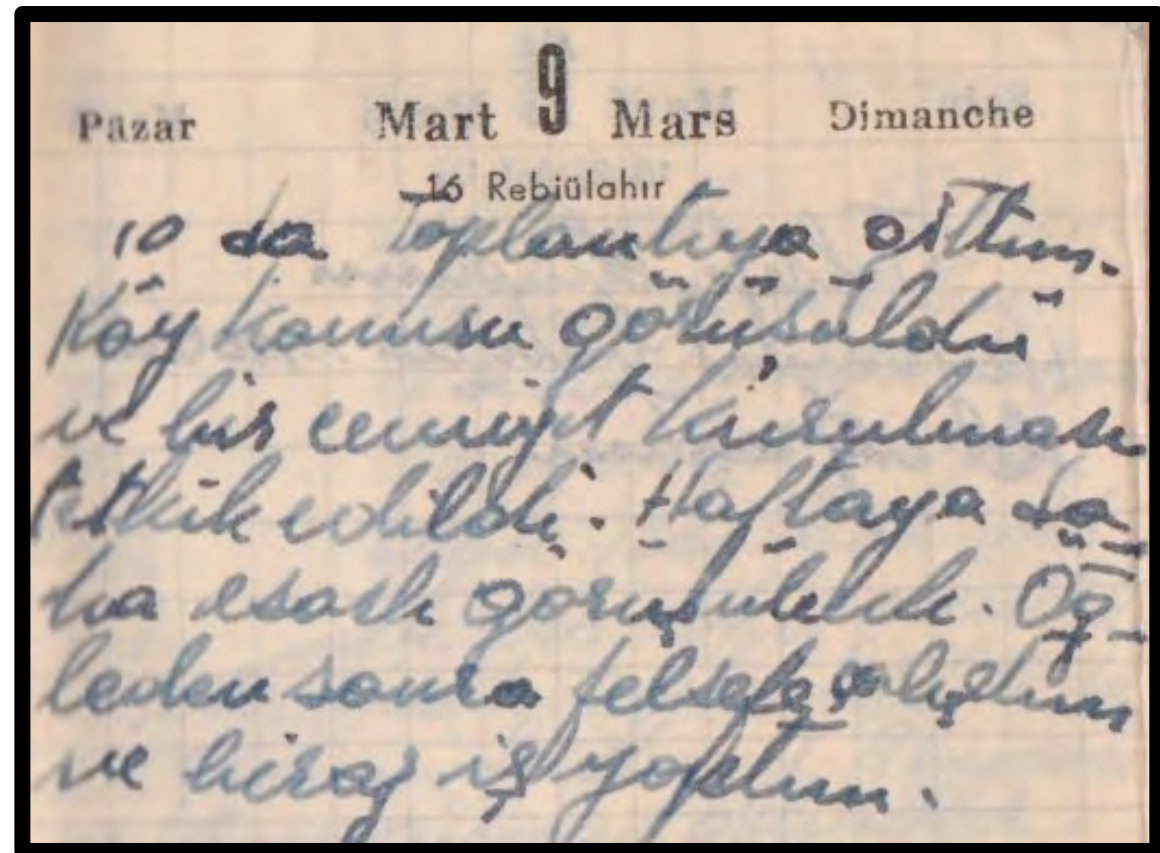 Pazar Mart 9 Mars Dimanche
16 Rebiülahır
10 da Toplantıya gittim.
Köy konusu görüşüldü
ve bir cemiyet kurulması
tetkik edildi. Haftaya da
ha esaslı görüşülecek. Öğ-
leden sonra felsefe çalıştım
ve biraz iş yaptım.